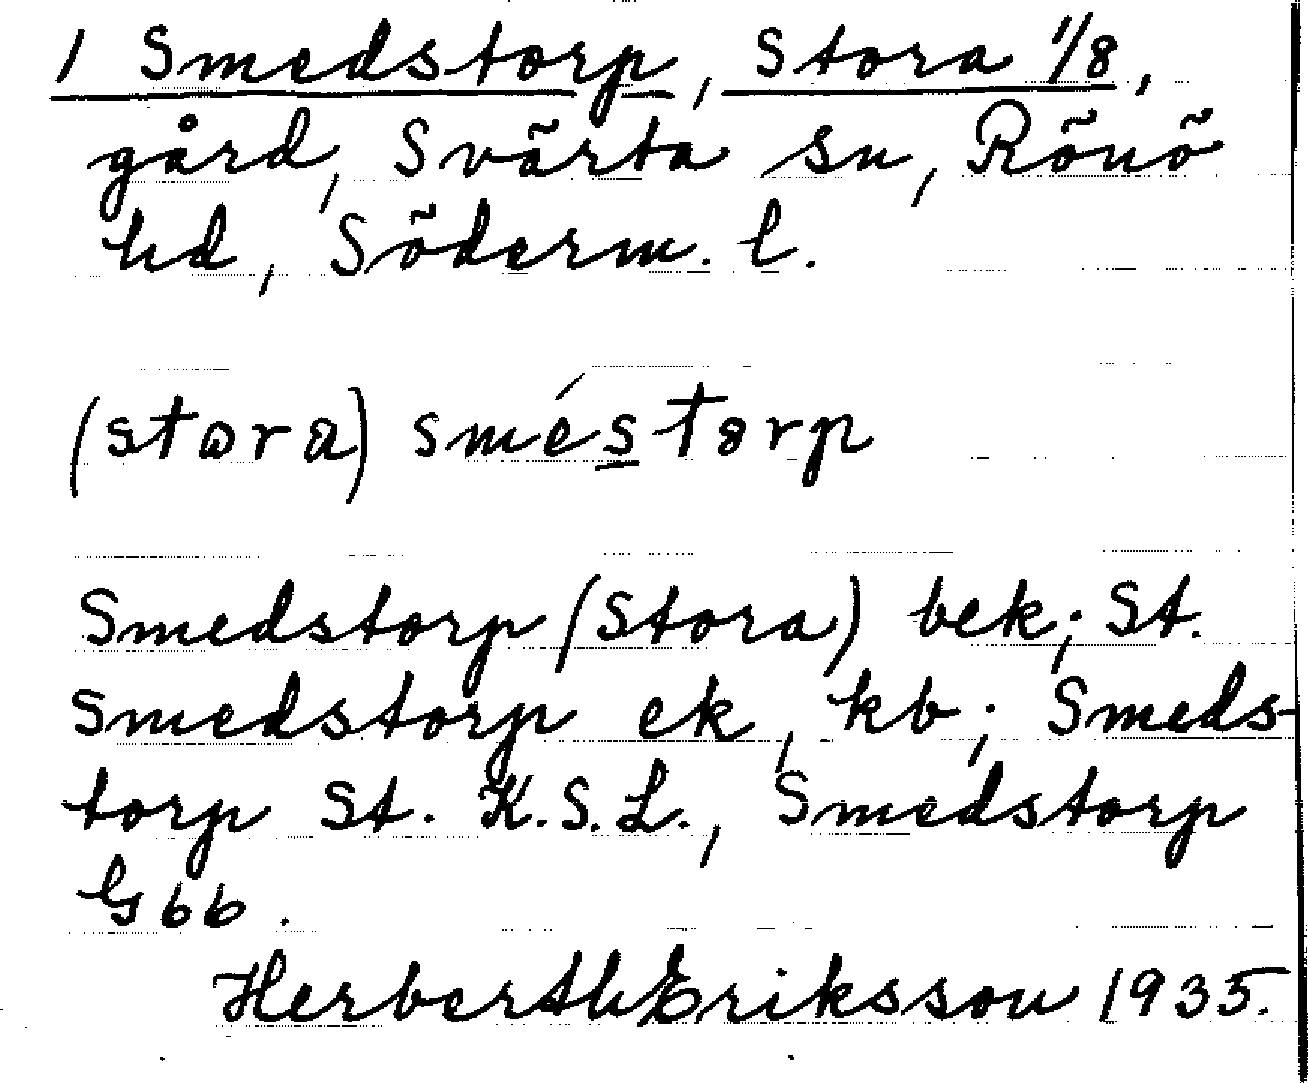 1 Smedstorp, Stora 1/8,
gård, Svärta sn, Rönö
hd, Söderm. l.
(stora) sméstorp
Smedstorp (Stora) bek; St.
Smedstorp ek, kb; Smeds-
torp St. K.S.L., Smedstorp
G66.
Herberth Eriksson 1935.